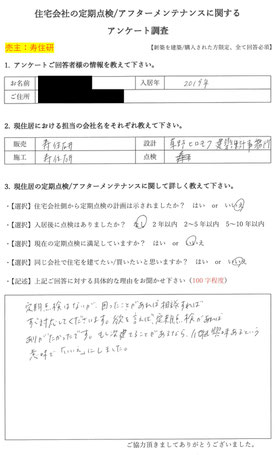 住宅会社の定期点検/アフターメンテナンスに関する
アンケート調査
売主：寿住研
【新築を建築/購入された方限定、全て回答必須】
1. アンケートご回答者様の情報を教えて下さい。
お名前 入居年 2019年
ご住所
2. 現住居における担当の会社名をそれぞれ教えて下さい。
販売 寿住研 設計
施工 寿住研 点検
3. 現住居の定期点検/アフターメンテナンスに関して詳しく教えて下さい。
・【選択】住宅会社側から定期点検の計画は示されましたか？ はい or いいえ
・【選択】入居後に点検はありましたか？ なし 2年以内 2～5年以内 5～10年以内
・【選択】現在の定期点検に満足していますか？ はい or いいえ
・【選択】同じ会社で住宅を建てたい/買いたいと思いますか？ はい or いいえ
・【記述】上記ご回答に対する具体的な理由をお聞かせ下さい（100字程度）
定期点検はないが、困ったことがあれば相談すれば
すぐ対応してくださいます。欲を言えば、定期点検があれば
ありがたかったです。もし家建てることがあるなら、
意味で「いいえ」にしました。
ご協力頂きましてありがとうございました。